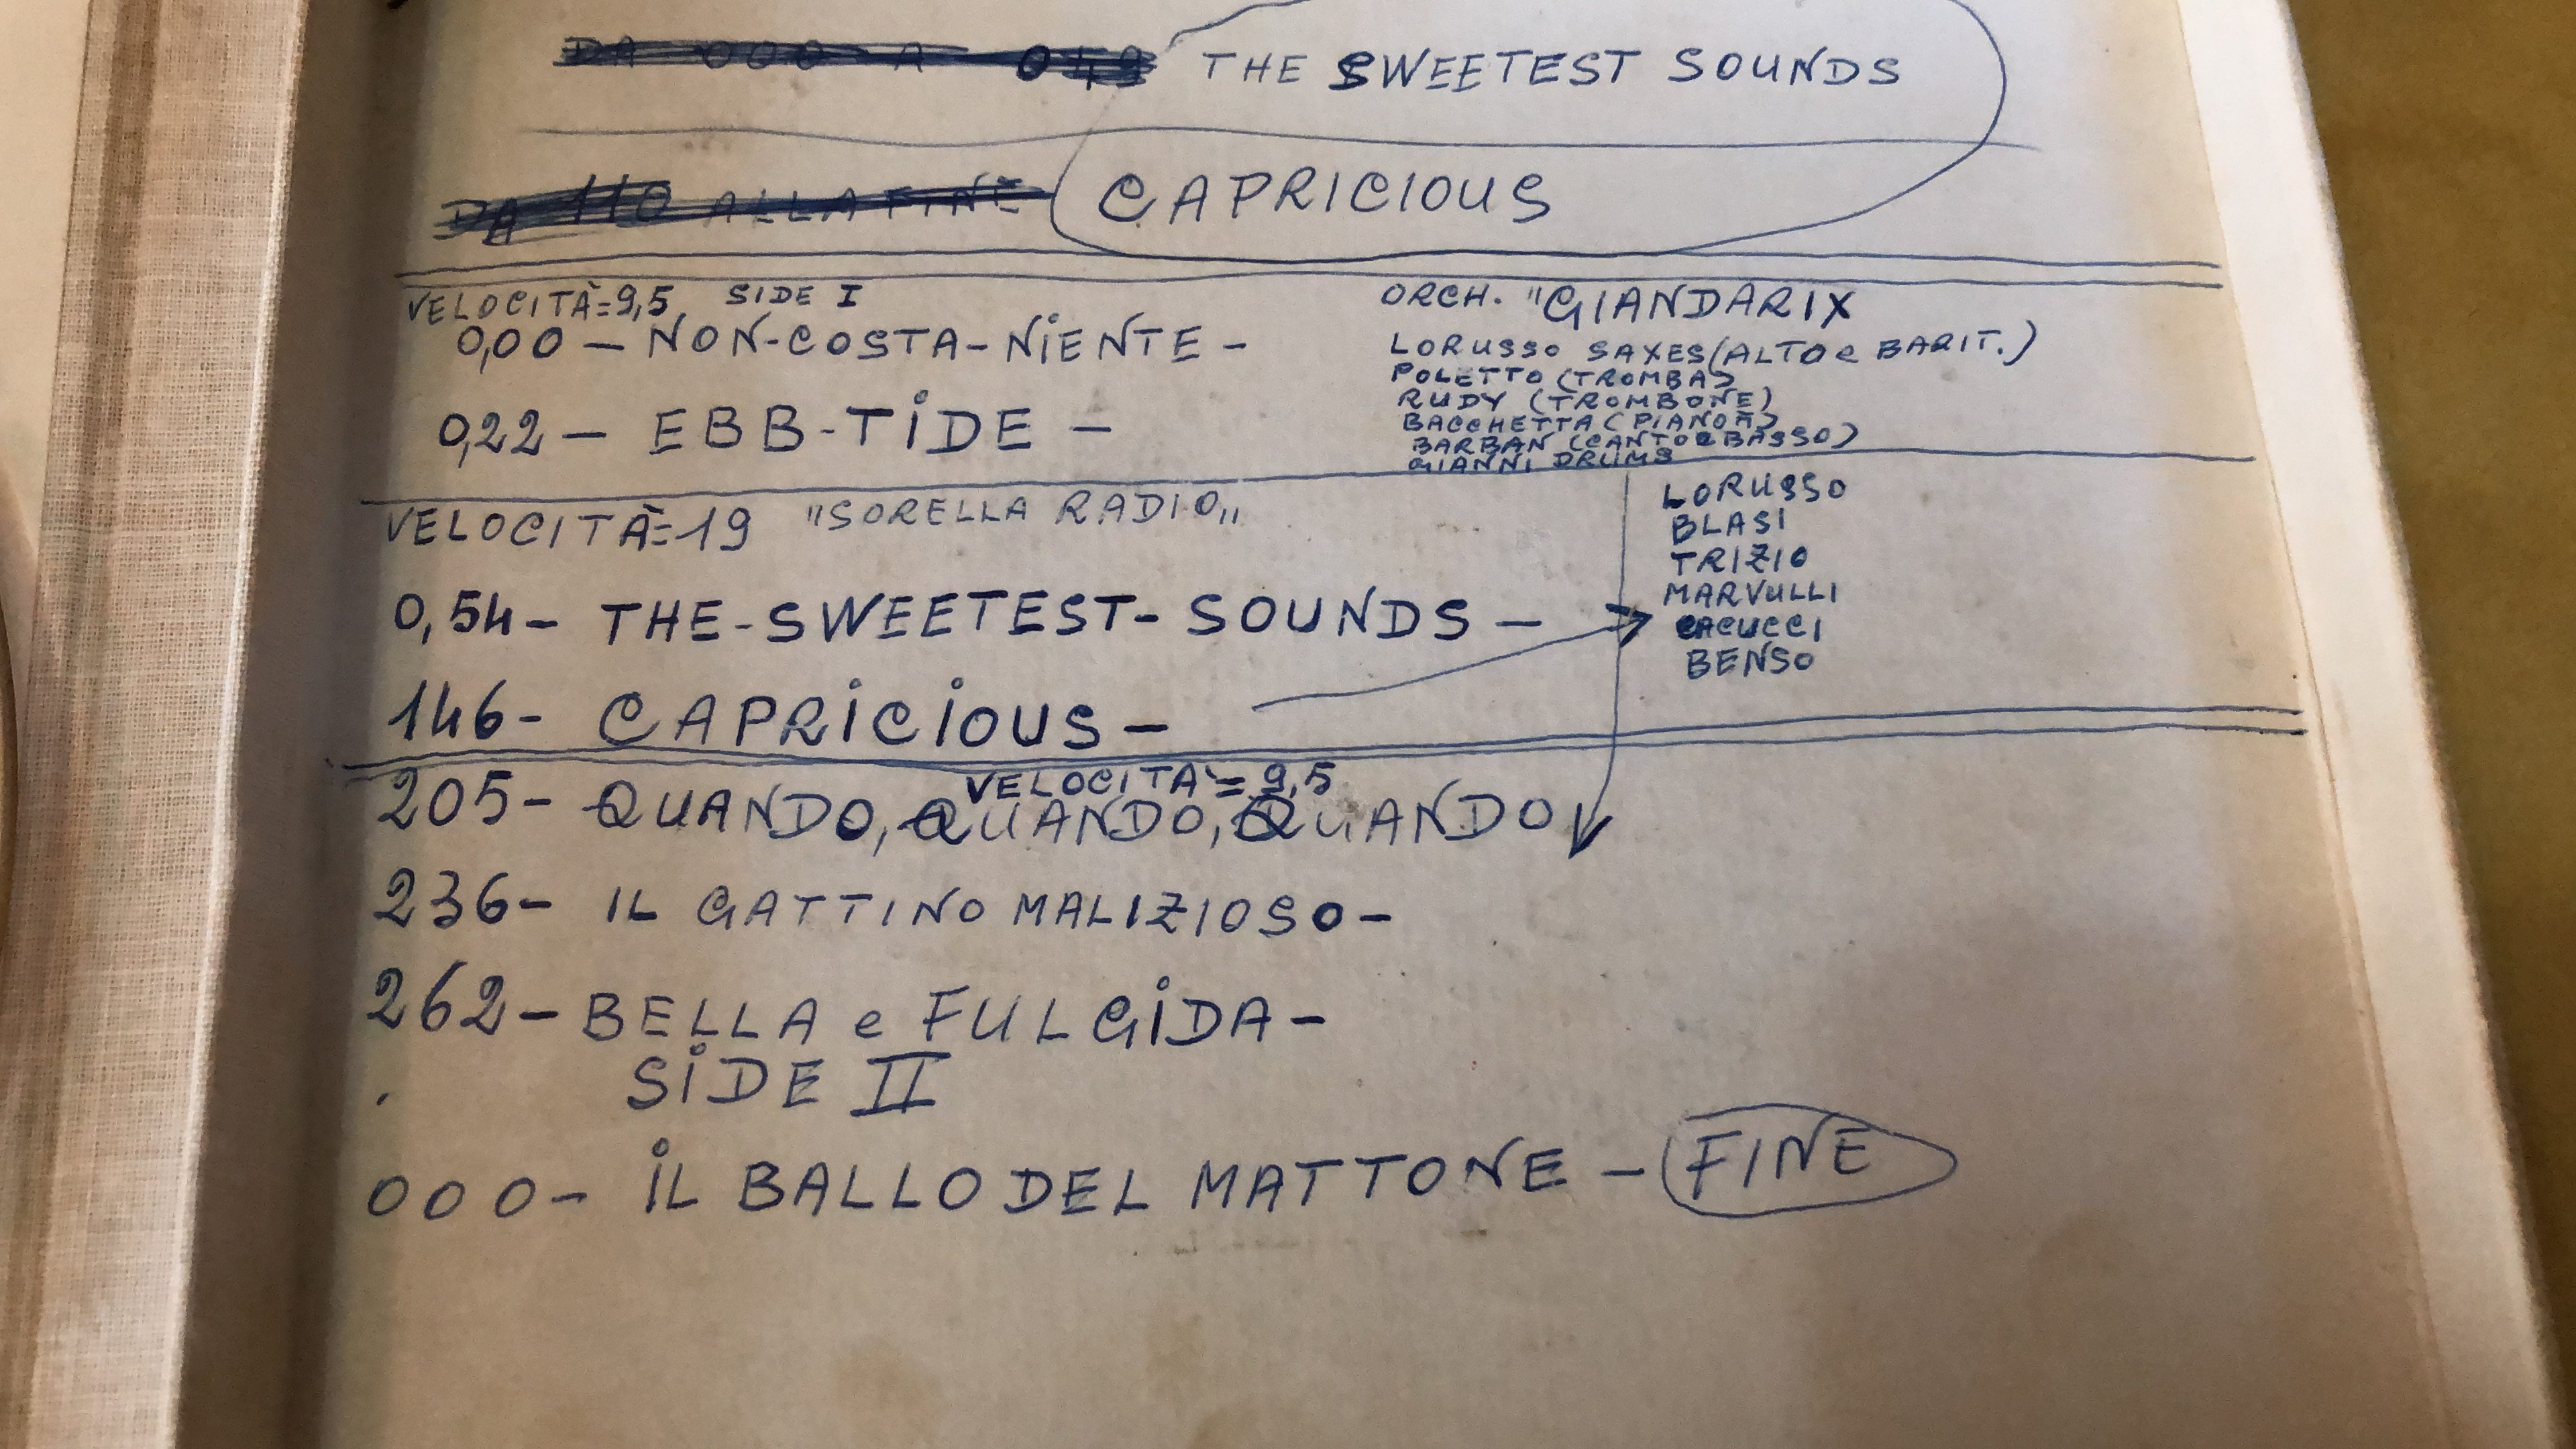 DA 000 A 049 THE SWEETEST SOUNDS
DA 110 ALLA FINE CAPRICIOUS
VELOCITÀ=9,5 SIDE I
0,00 – NON-COSTA-NIENTE –
0,22 – EBB-TIDE –
ORCH. "GIANDARIX
LORUSSO SAXES (ALTO e BARIT.)
POLETTO (TROMBA)
RUDY (TROMBONE)
BACCHETTA (PIANO)
BARBAN (CANTO e BASSO)
GIANNI DRUMS
VELOCITÀ=19 "SORELLA RADIO„
0,54– THE-SWEETEST-SOUNDS –
146– CAPRICIOUS –
LORUSSO
BLASI
TRIZIO
MARVULLI
CACUCCI
BENSO
VELOCITA'=9,5
205– QUANDO, QUANDO, QUANDO
236– IL GATTINO MALIZIOSO–
262– BELLA e FULGIDA–
SIDE II
000– IL BALLO DEL MATTONE – FINE